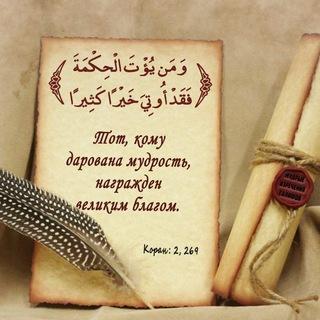 وَمَن يُؤْتَ الْحِكْمَةَ
فَقَدْ أُوتِيَ خَيْرًا كَثِيرًا
Тот, кому
дарована мудрость,
награжден
великим благом.
Коран: 2, 269
МУДРЫЕ
ИЗРЕЧЕНИЯ